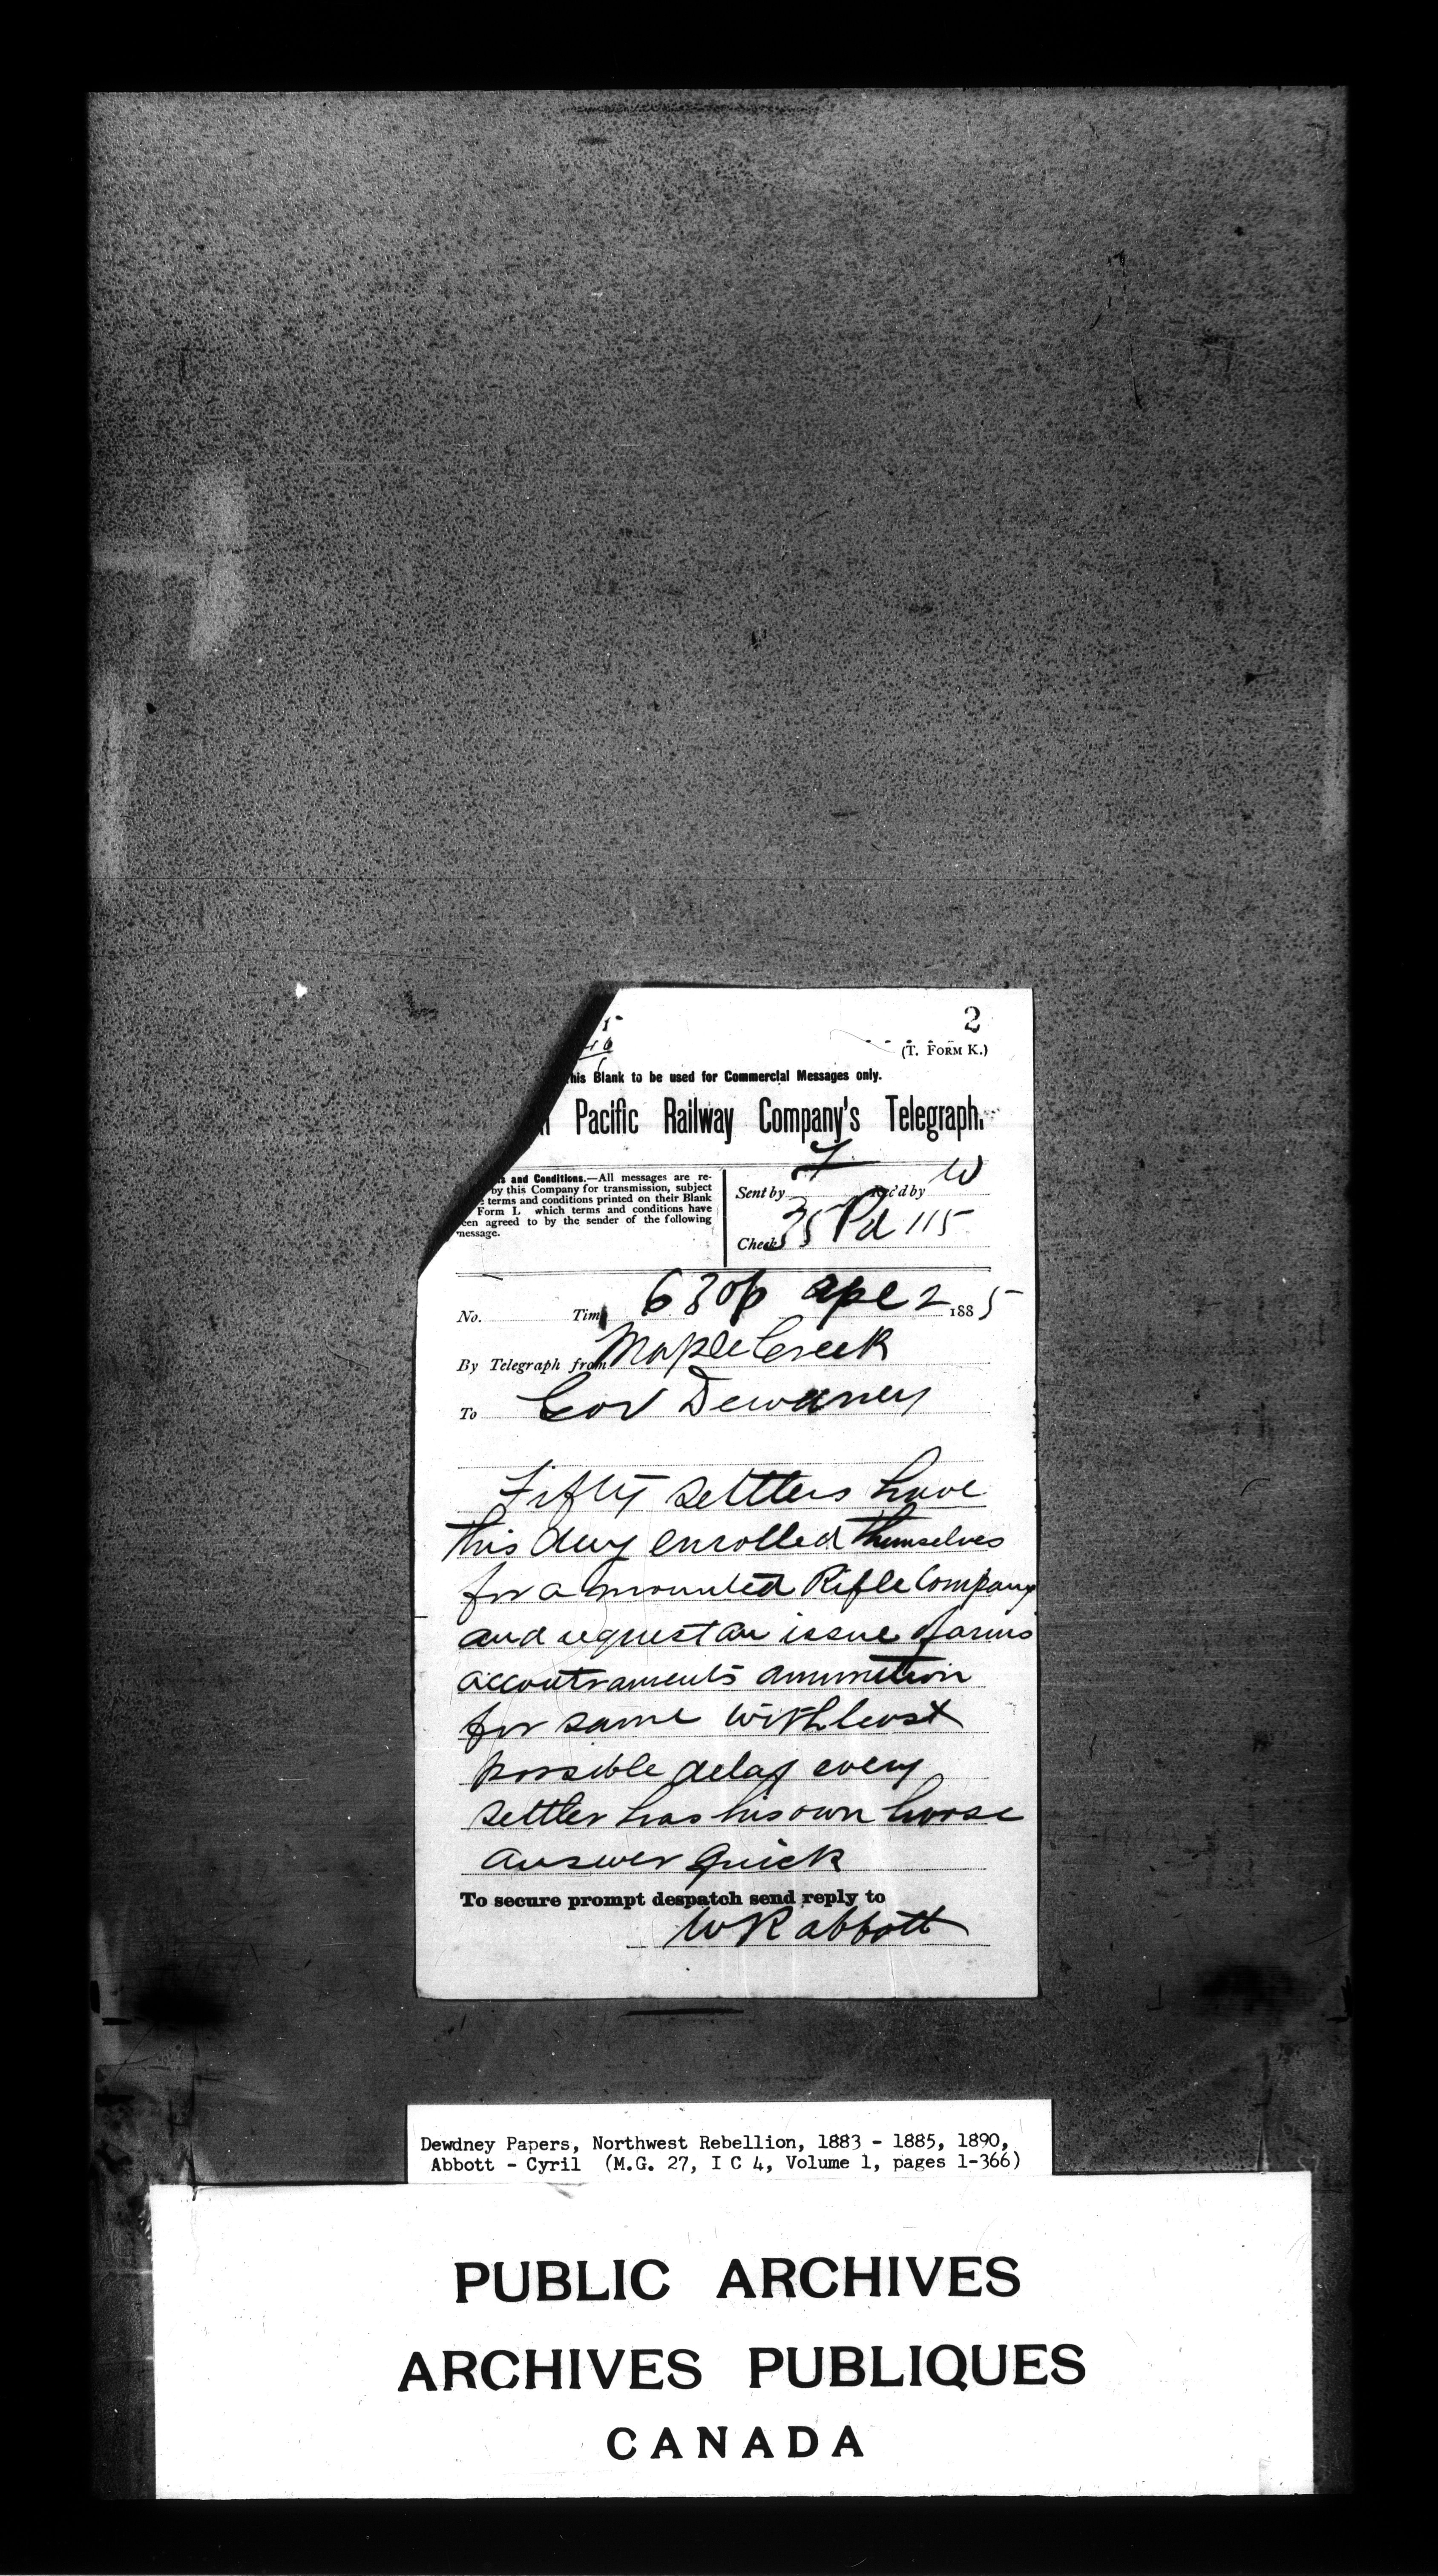 2
(T. FORM K.)
his Blank to be used for Commercial Messages only.
Pacific Railway Company's Telegraph.
and Conditions.—All messages are re-
by this Company for transmission, subject
terms and conditions printed on their Blank
Form L which terms and conditions have
een agreed to by the sender of the following
message.
Sent by Rec'd by W
Check 35 Pd 115
No. Time 630p apl 2 1885
By Telegraph from Maple Creek
To Gov Dewdney
Fifty settlers have
this day enrolled themselves
for a mounted Rifle Company
and request an issue of arms
accoutraments ammunition
for same with least
possible delay every
settler has his own horse
answer quick
To secure prompt despatch send reply to
W R abbott
Dewdney Papers, Northwest Rebellion, 1883 - 1885, 1890,
Abbott - Cyril (M.G. 27, I C 4, Volume 1, pages 1-366)
PUBLIC ARCHIVES
ARCHIVES PUBLIQUES
CANADA